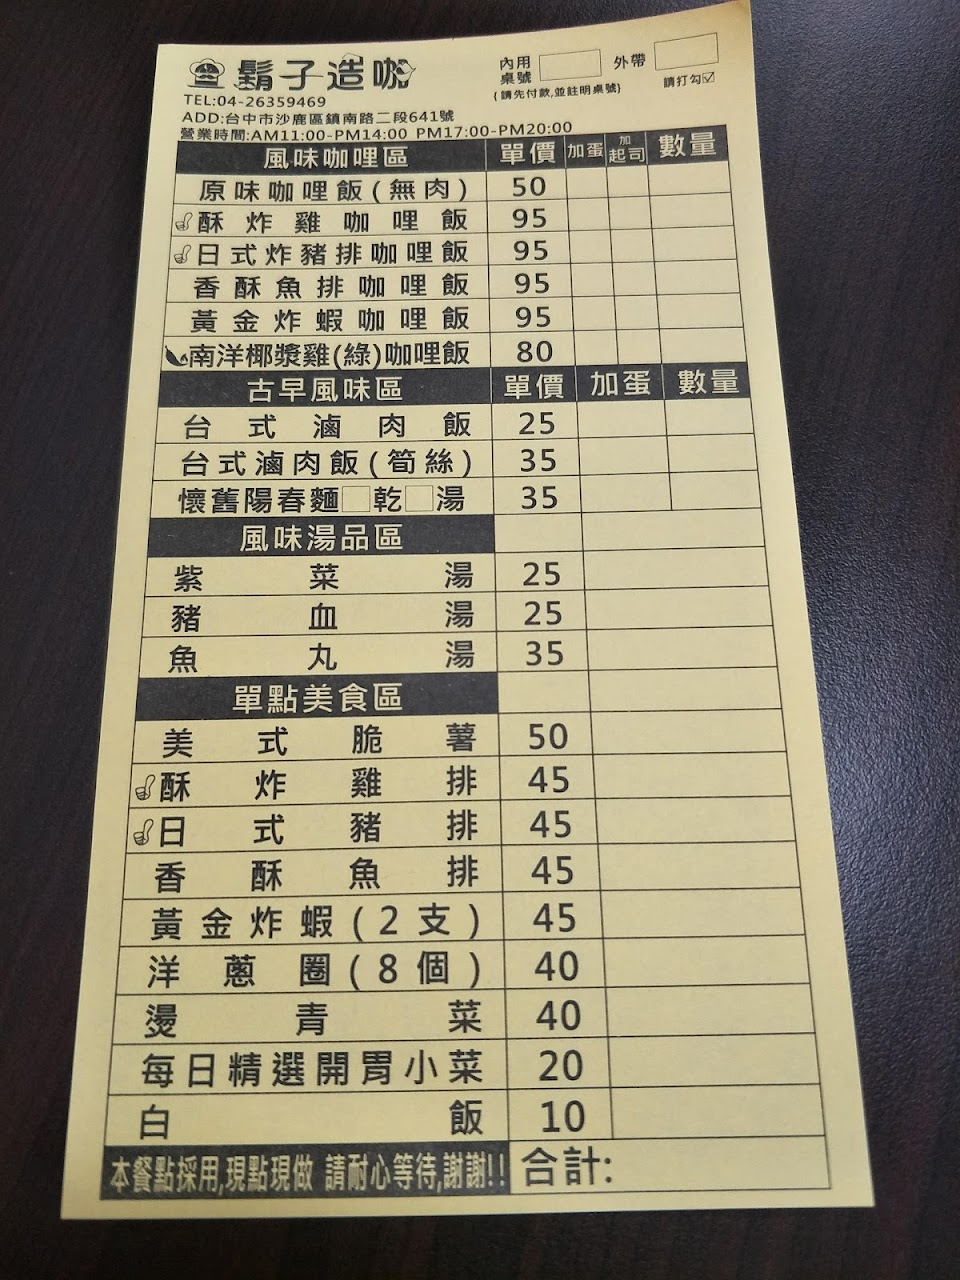 鬍子造咖
內用
桌號
外帶
(請先付款,並註明桌號)
請打勾☑
TEL:04-26359469
ADD:台中市沙鹿區鎮南路二段641號
營業時間:AM11:00-PM14:00 PM17:00-PM20:00
風味咖哩區 單價 加蛋 加起司 數量
原味咖哩飯(無肉) 50
酥炸雞咖哩飯 95
日式炸豬排咖哩飯 95
香酥魚排咖哩飯 95
黃金炸蝦咖哩飯 95
南洋椰漿雞(綠)咖哩飯 80
古早風味區 單價 加蛋 數量
台式滷肉飯 25
台式滷肉飯(筍絲) 35
懷舊陽春麵□乾□湯 35
風味湯品區
紫菜湯 25
豬血湯 25
魚丸湯 35
單點美食區
美式脆薯 50
酥炸雞排 45
日式豬排 45
香酥魚排 45
黃金炸蝦(2支) 45
洋蔥圈(8個) 40
燙青菜 40
每日精選開胃小菜 20
白飯 10
本餐點採用,現點現做 請耐心等待,謝謝!! 合計: